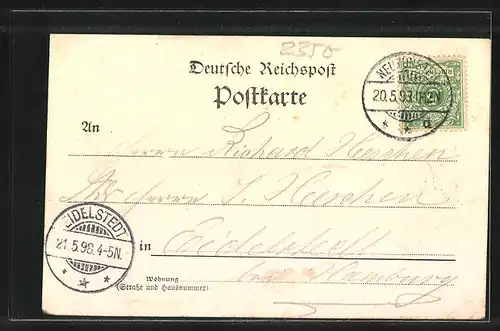 2350
Deutsche Reichspost
Postkarte
NEUMÜNSTER
20.5.98.
An
Herrn Richard Herschen
Herrn J. Herschen
EIDELSTEDT
21.5.98.4-5N.
in Eidelstedt
bei Hamburg
Wohnung
(Straße und Hausnummer)